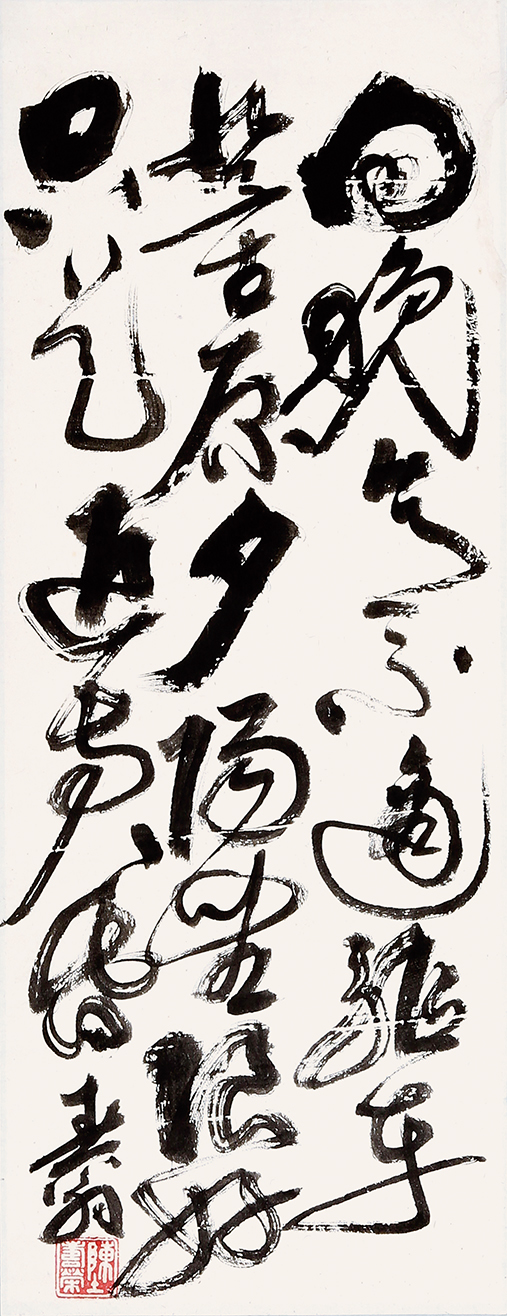 向晚意不適驅車
登古原夕陽無限好
只是近黃昏 玉翁